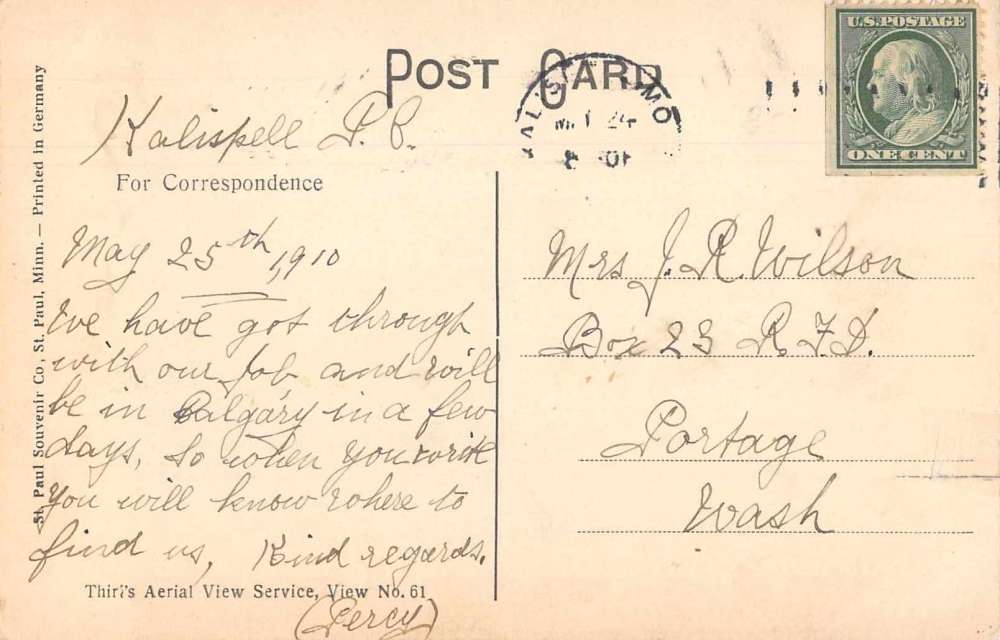 POST CARD
U.S. POSTAGE
ONE CENT
24
Kalispell P.O.
For Correspondence
May 25th, 1910
We have got through
with our job and will
be in Calgary in a few
days, So when you write
you will know where to
find us, Kind regards.
(Percy)
Thiri's Aerial View Service, View No. 61
St. Paul Souvenir Co., St. Paul, Minn. — Printed in Germany
Mrs J. R. Wilson
Box 23 R.F.D.
Portage
Wash